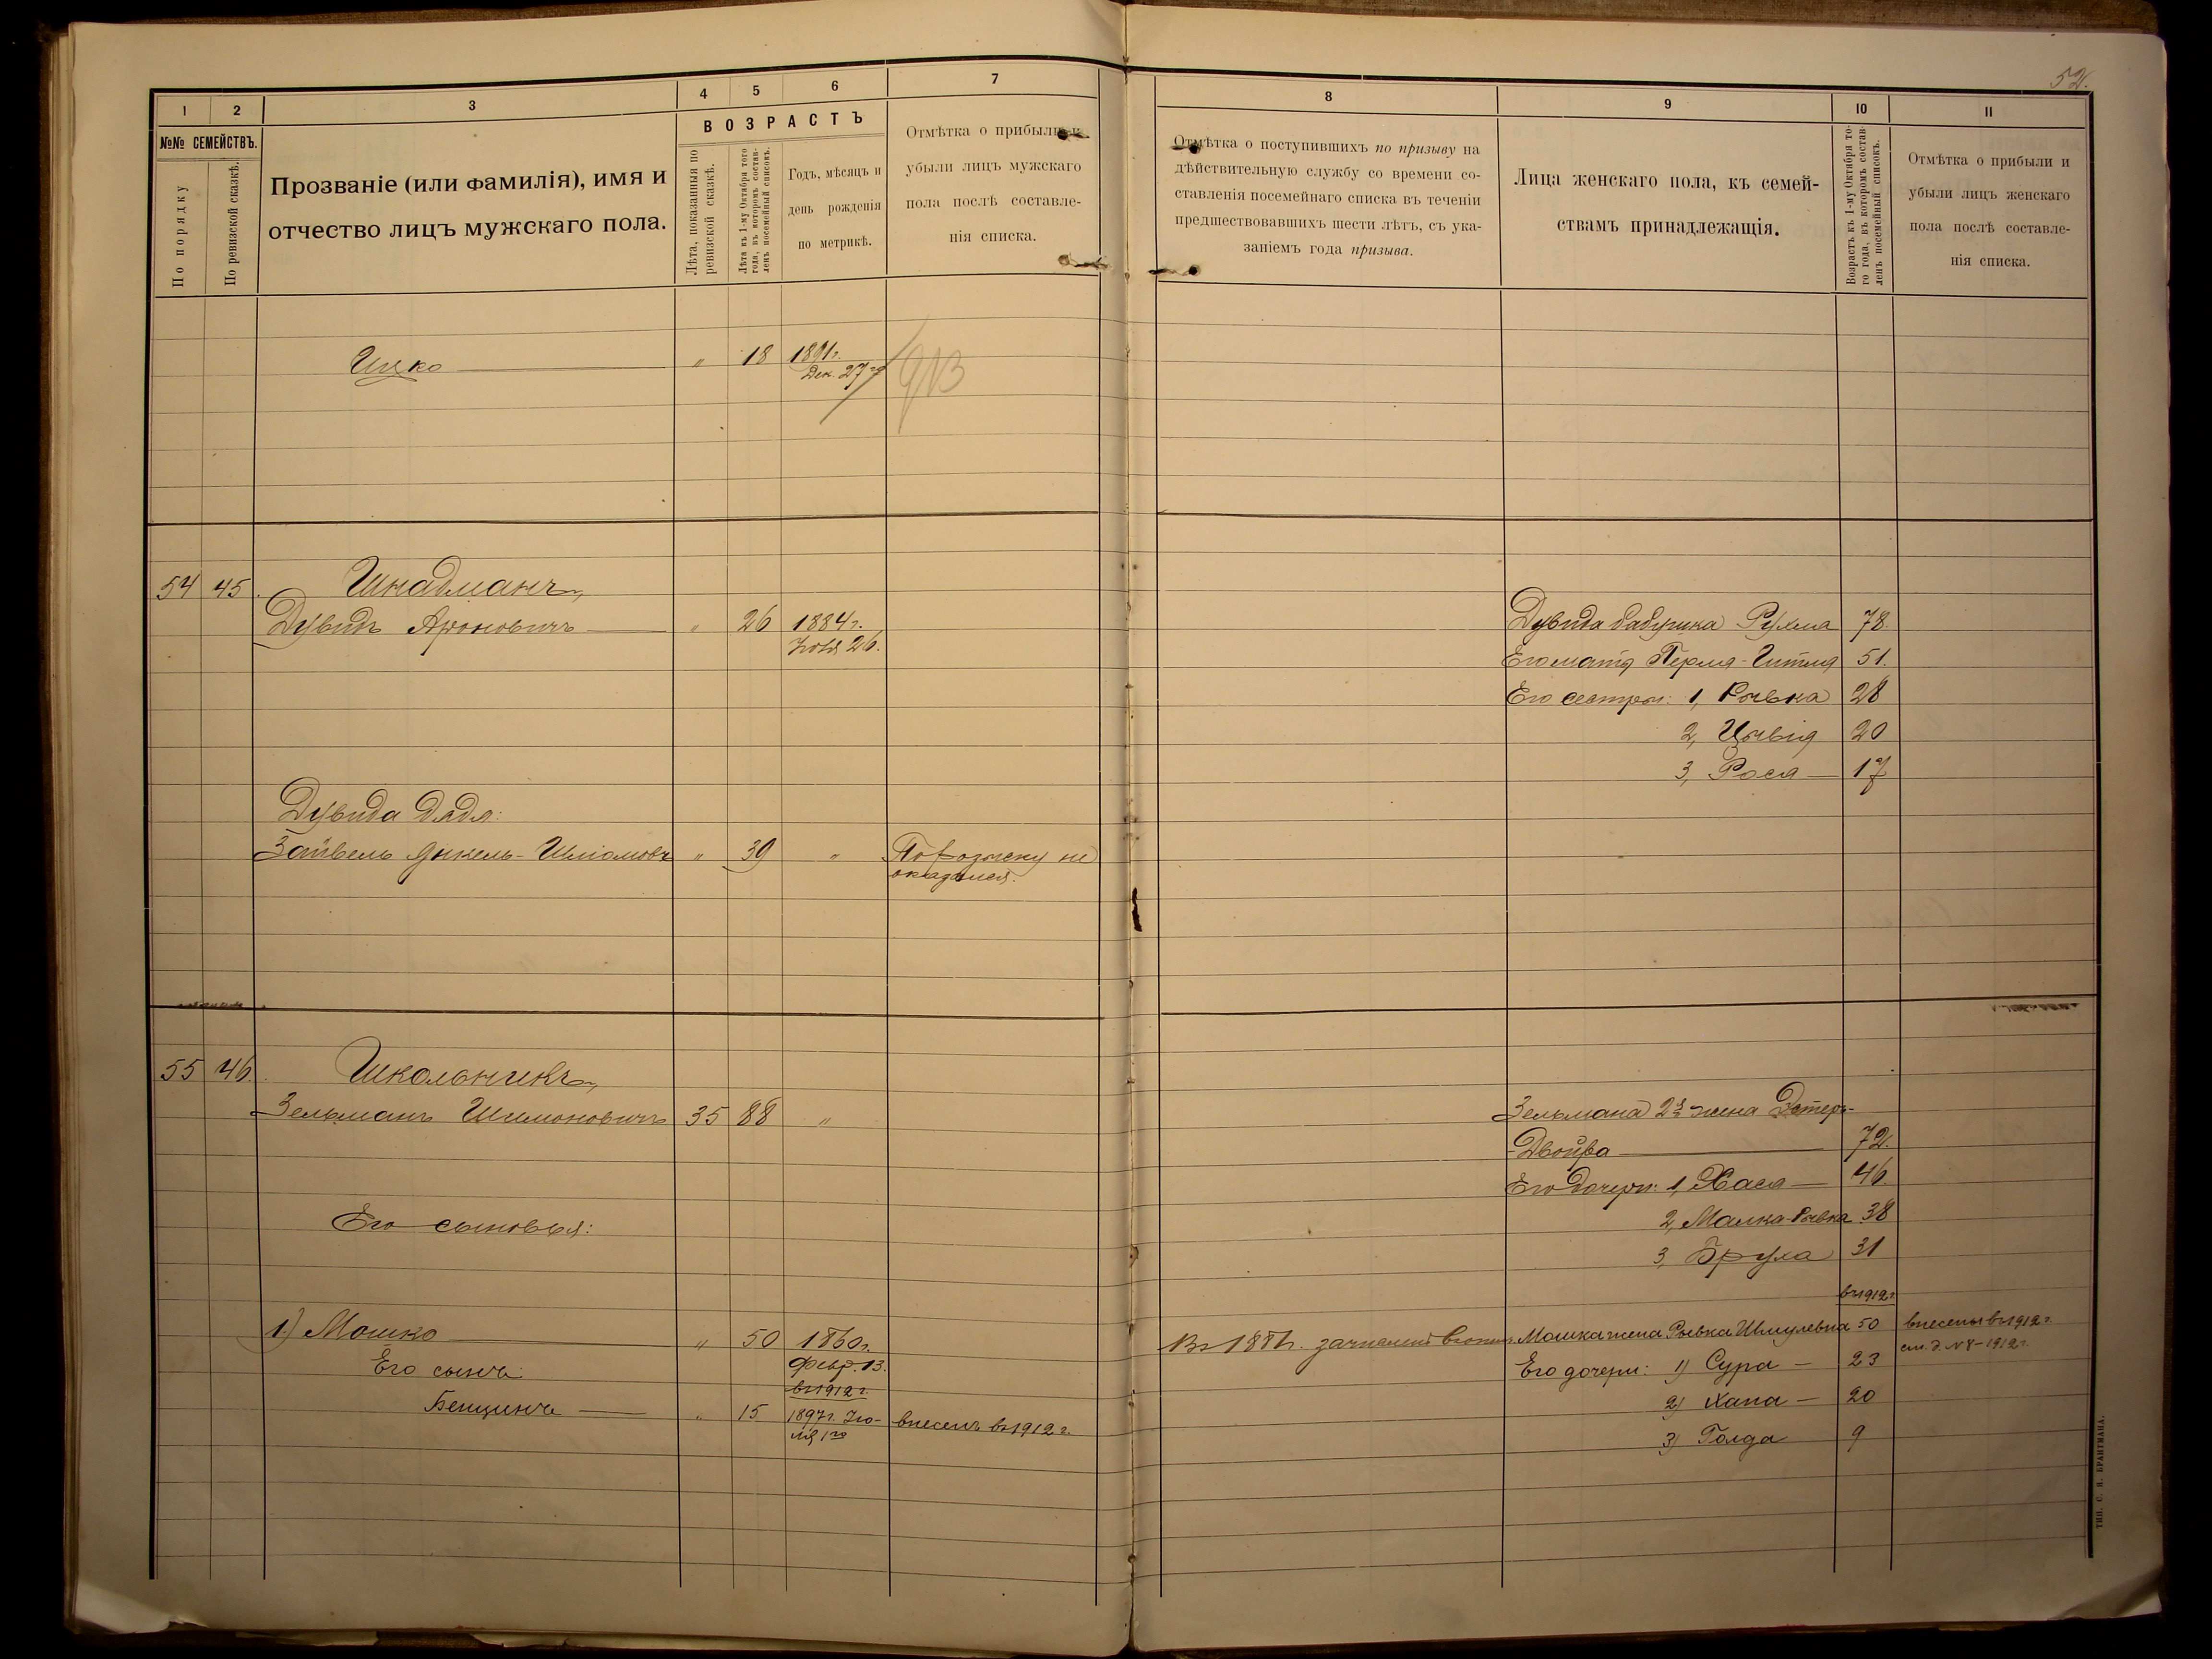 52.
1
2
3
4
5
6
7
№№ СЕМЕЙСТВЪ.
По порядку
По ревизской сказкѣ.
Прозваніе (или фамилія), имя и
отчество лицъ мужскаго пола.
ВОЗРАСТЪ
Лѣта, показанныя по
ревизской сказкѣ.
Лѣта къ 1-му Октября того
года, въ которомъ состав-
ленъ посемейный списокъ.
Годъ, мѣсяцъ и
день рожденія
по метрикѣ.
Отмѣтка о прибыли и
убыли лицъ мужскаго
пола послѣ составле-
нія списка.
Ицко " 18 1891г.
Дек. 27го
913
54 45. Шнадманъ,
Дувидъ Ароновичъ " 26 1884г.
Ноя 26.
Дувида дядя:
Зайвель Янкель-Шліомовъ " 39 " По розыску не
оказался.
55 46. Школьникъ,
Зельманъ Шимоновичъ 35 88 "
Его сыновья:
1) Мошко " 50 1860г.
Февр. 13.
Его сынъ: въ 1912г.
Бенціинъ " 15 1897г. Ію- внесенъ въ 1912г.
ля 1го
8
9
10
11
Отмѣтка о поступившихъ по призыву на
дѣйствительную службу со времени со-
ставленія посемейнаго списка въ теченіи
предшествовавшихъ шести лѣтъ, съ ука-
заніемъ года призыва.
Лица женскаго пола, къ семей-
ствамъ принадлежащія.
Возрастъ къ 1-му Октября то-
го года, въ которомъ состав-
ленъ посемейный списокъ.
Отмѣтка о прибыли и
убыли лицъ женскаго
пола послѣ составле-
нія списка.
Дувида бабушка Рухма 78.
Его мать Перля-Гитля 51.
Его сестры: 1, Рывка 28
2, Цывія 20
3, Рося 17
Зельмана 2я жена Эстеръ-
-Двойра 72.
Его дочери: 1, Хася 46
2, Малка-Рывка 38
3, Брула 31
въ 1912г
Въ 1881г. зачисленъ в Мошка жена Рывка Шмулевна 50 внесены въ 1912г.
см. д. №8-1912г.
Его дочери: 1) Сура 23
2) Хана 20
3) Голда 9
ТИП. С. Я. БРАНТМАНА.